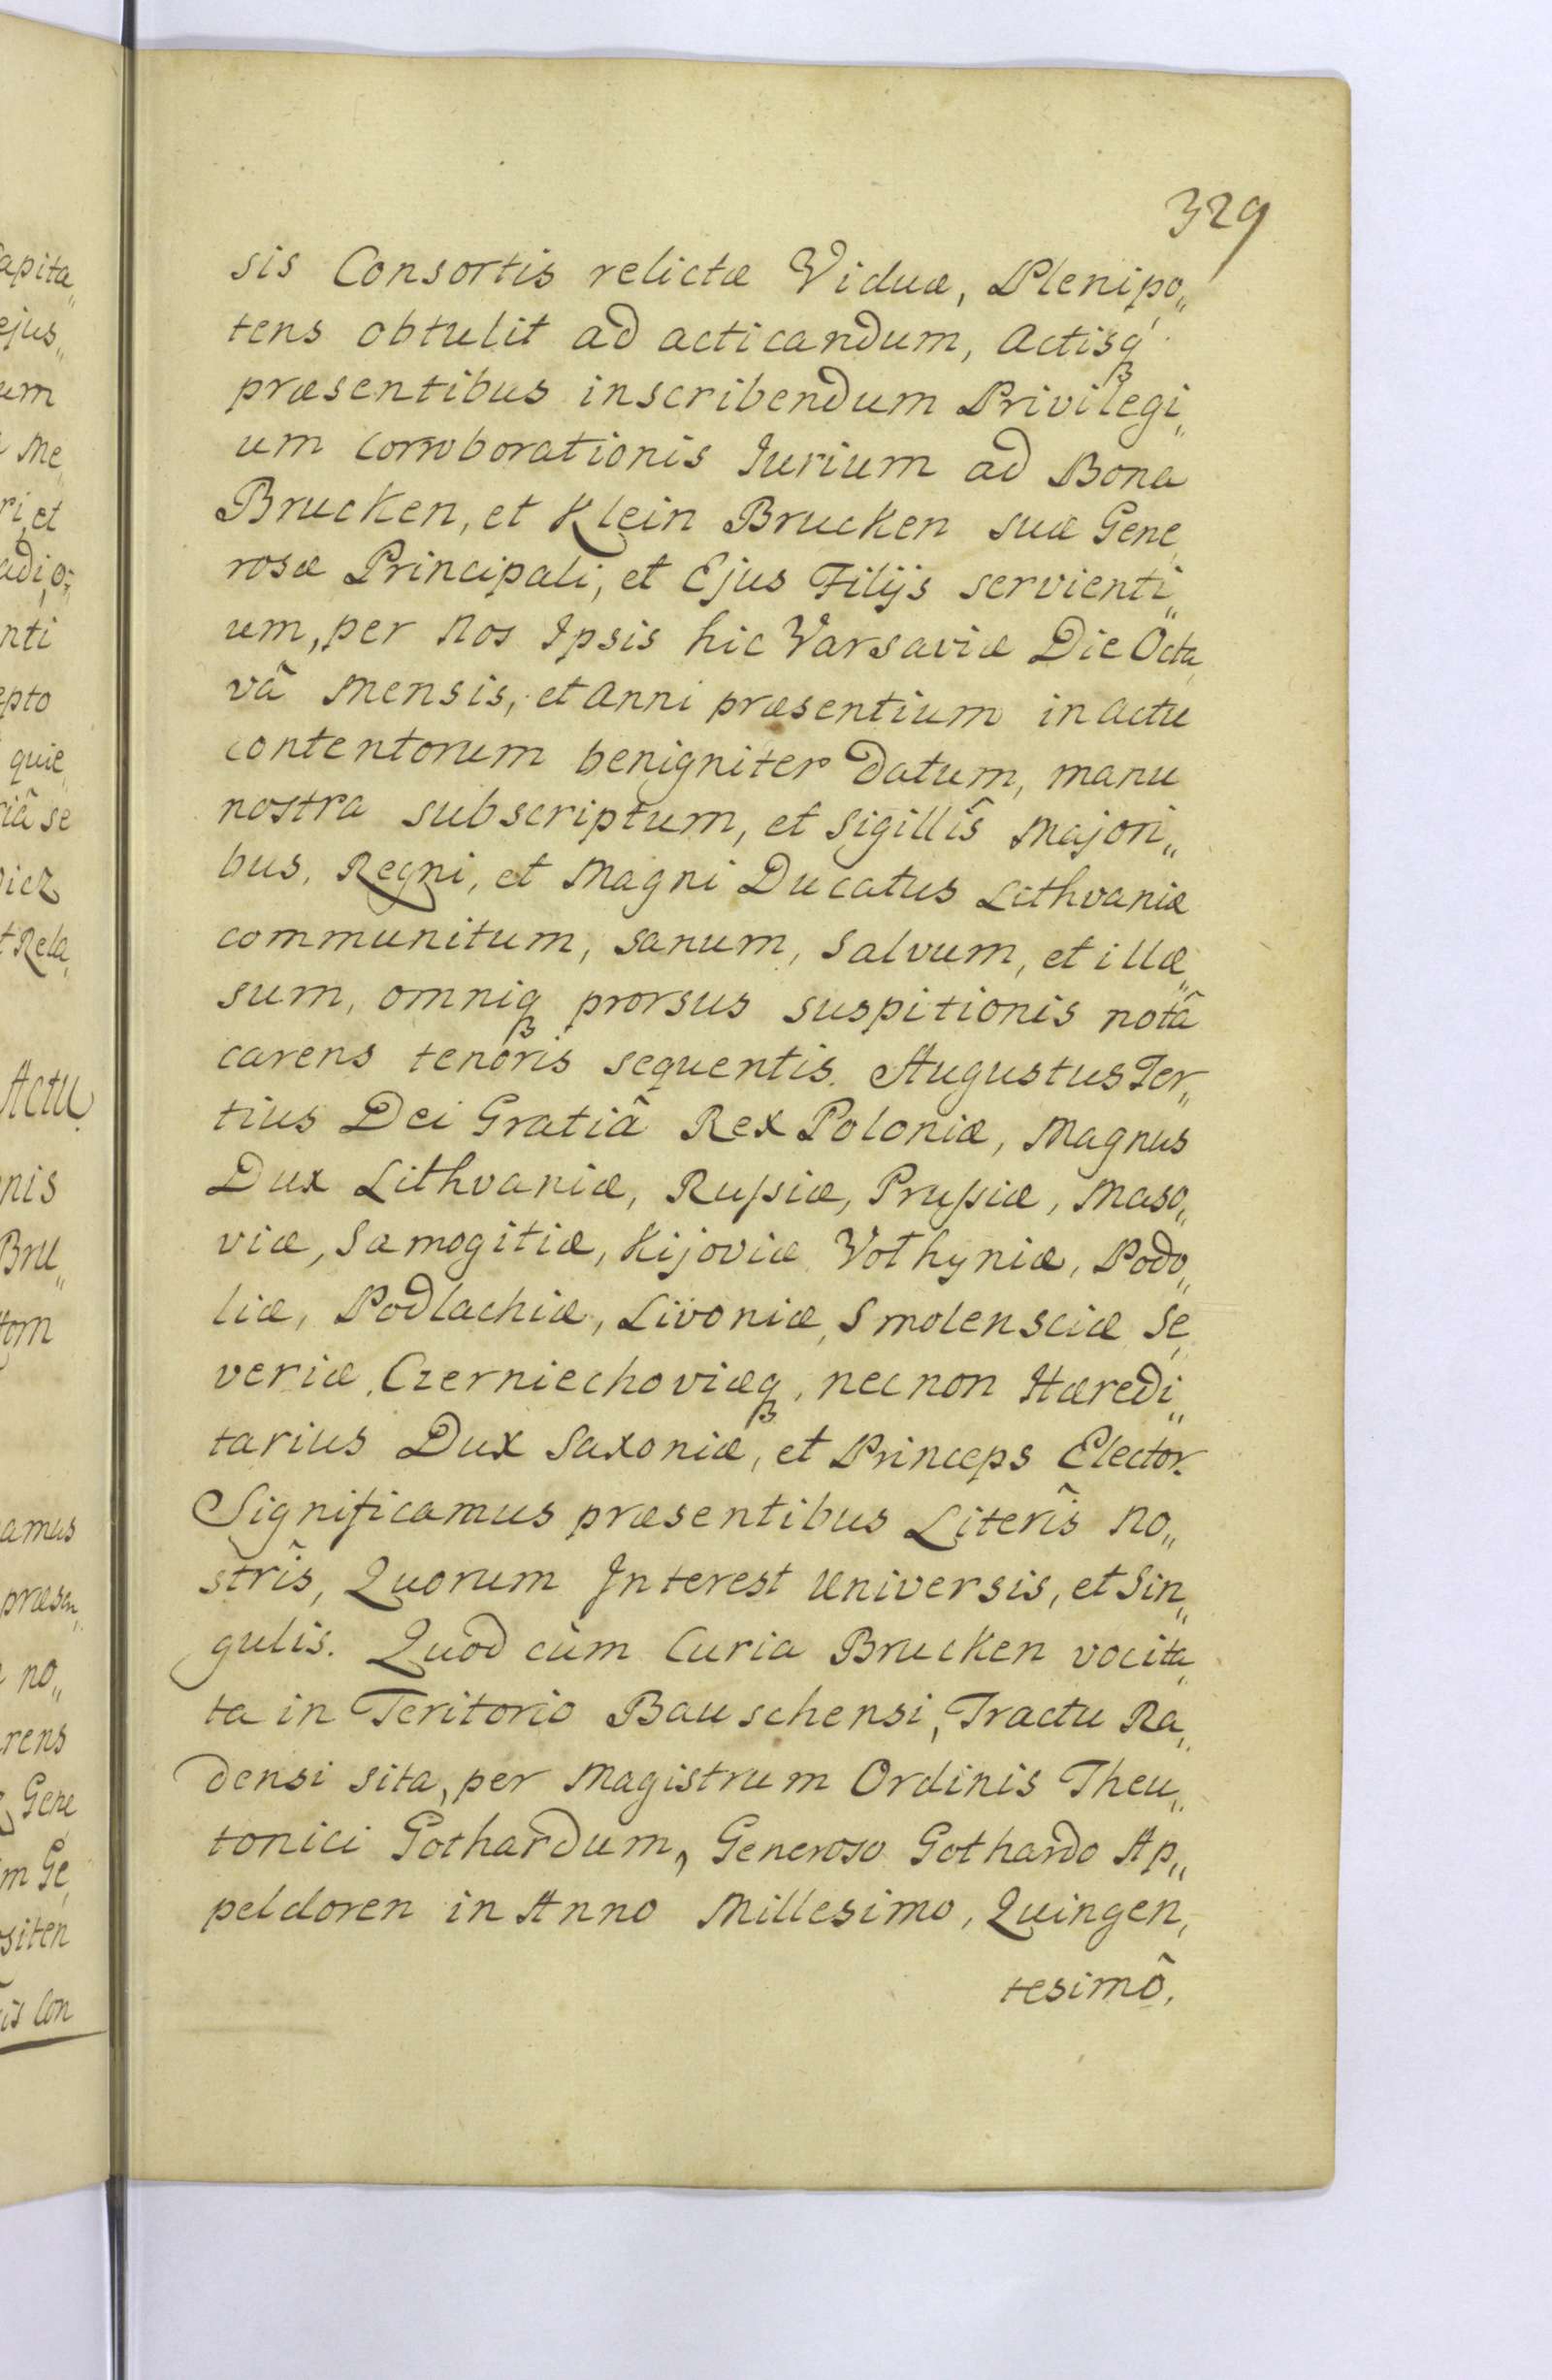 329
sis Consortis relictæ Viduæ, Plenipo„
tens obtulit ad acticandum, Actisq́
præsentibus inscribendum Privilegi„
um corroborationis Iurium ad Bona
Brucken, et Klein Brucken suæ Gene„
rosæ Principali, et Ejus Filijs servienti„
um, per Nos Ipsis hic Varsaviæ Die Octa„
vâ Mensis, et Anni præsentium in actu
contentorum benigniter datum, manu
nostra subscriptum, et Sigillîs Majori„
bus, Regni, et Magni Ducatus Lithvaniæ
communitum, sanum, Salvum, et illæ„
sum, omniq prorsus suspitionis notâ
carens tenoris sequentis. Augustus Ter„
tius Dei Gratiâ Rex Poloniæ, Magnus
Dux Lithvaniæ, Rußiæ, Prußiæ, Maso„
viæ, Samogitiæ, Kijoviæ Vothyniæ, Podo„
liæ, Podlachiæ, Livoniæ, Smolensciæ Se„
veriæ, Czerniechoviæq, nec non Hæredi„
tarius Dux Saxoniæ, et Princeps Elector.
Significamus præsentibus Literîs no„
strîs, Quorum Interest Universis, et Sin„
gulis. Quod cùm Curia Brucken vocita„
ta in Teritorio Bauschensi, Tractu Ra„
densi sita, per Magistrum Ordinis Theu„
tonici Gothardum, Generoso Gothardo Ap„
peldoren in Anno Millesimo, Quingen„
tesimô,
apita„
ejus„
um
Me„
ri, et
nti
epto
quie„
riâ se
t Rela„
Actu
nis
Bru„
tom
amus
præsen„
no„
rens
Gene
m Ge„
siten
is Con